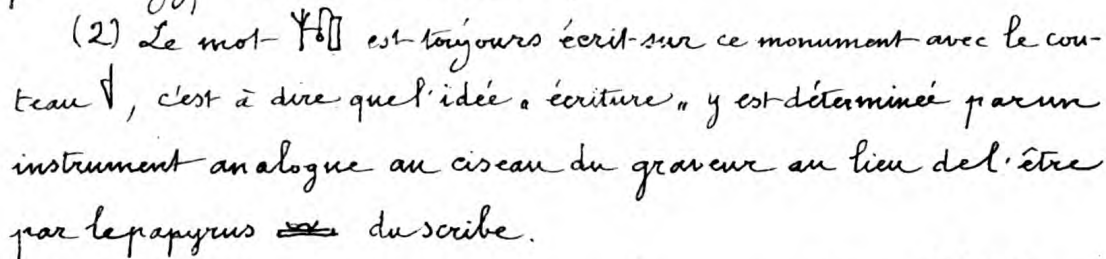 (2) Le mot est toujours écrit sur ce monument avec le cou-
teau, c'est à dire que l'idée „ écriture „ y est déterminée par un
instrument analogue au ciseau du graveur au lieu de l'être
par le papyrus du scribe.